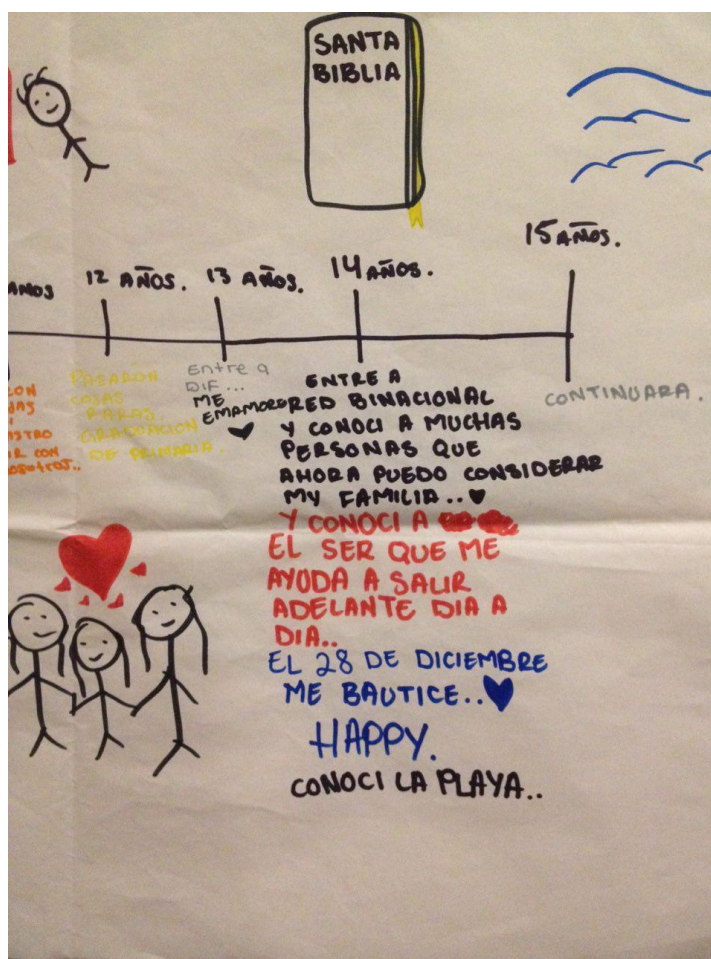 SANTA
BIBLIA
AÑOS
12 AÑOS.
13 AÑOS.
14 AÑOS.
15 AÑOS.
CON
SOTROS..
PASARON
COSAS
RARAS.
GRADUACION
DE PRIMARIA.
Entre a
DIF...
ME
EMAMORE
ENTRE A
RED BINACIONAL
Y CONOCI A MUCHAS
PERSONAS QUE
AHORA PUEDO CONSIDERAR
MY FAMILIA..
Y CONOCI A
EL SER QUE ME
AYUDA A SALIR
ADELANTE DIA A
DIA..
EL 28 DE DICIEMBRE
ME BAUTICE..
HAPPY.
CONOCI LA PLAYA..
CONTINUARA.